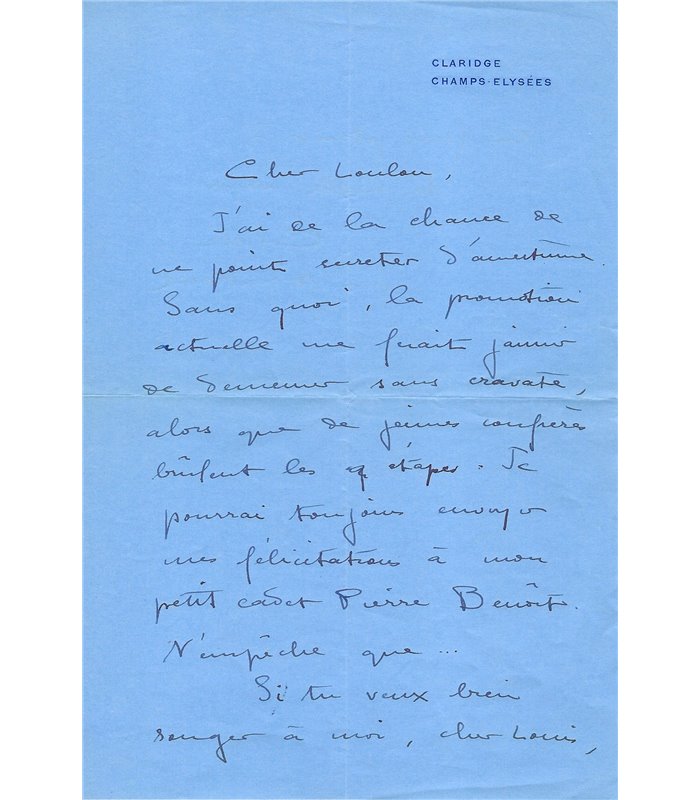 CLARIDGE
CHAMPS-ELYSÉES
Cher Loulou,
J'ai de la chance de
ne point secréter d'amertume.
Sans quoi, la promotion
actuelle me ferait gémir
de demeurer sans cravate,
alors que de jeunes confrères
brûlent les étapes. Je
pourrai toujours envoyer
mes félicitations à mon
petit cadet Pierre Benôit.
N'empêche que ...
Si tu veux bien
songer à moi, cher Louis,